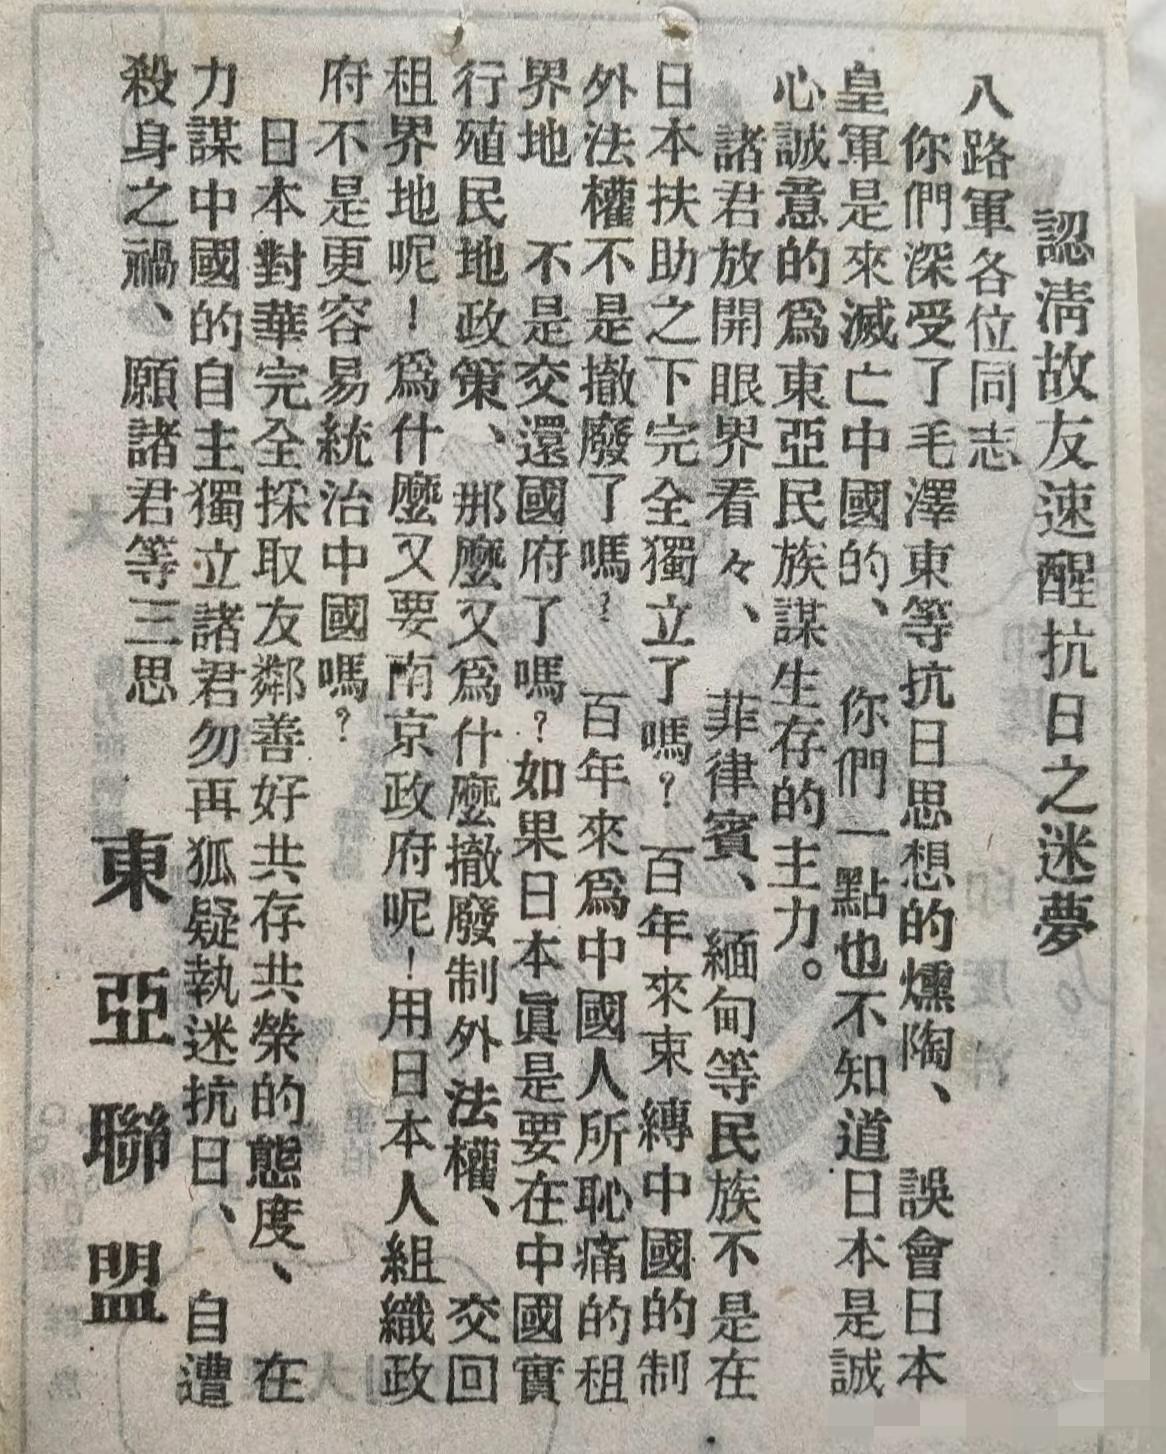 認淸故友速醒抗日之迷夢
八路軍各位同志
你們深受了毛澤東等抗日思想的燻陶、誤會日本
皇軍是來滅亡中國的、你們一點也不知道日本是誠
心誠意的爲東亞民族謀生存的主力。
諸君放開眼界看々、菲律賓、緬甸等民族不是在
日本扶助之下完全獨立了嗎？百年來束縛中國的制
外法權不是撤廢了嗎？百年來爲中國人所恥痛的租
界地 不是交還國府了嗎？如果日本眞是要在中國實
行殖民地政策、那麼又爲什麼撤廢制外法權、交回
租界地呢！爲什麼又要南京政府呢！用日本人組織政
府不是更容易統治中國嗎？
日本對華完全採取友鄰善好共存共榮的態度、在
力謀中國的自主獨立諸君勿再狐疑執迷抗日、自遭
殺身之禍、願諸君等三思
東亞聯盟